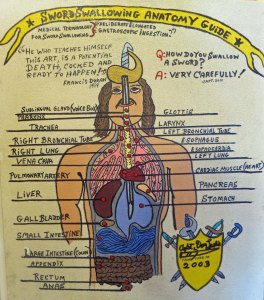 SWORD SWALLOWING ANATOMY GUIDE
MEDICAL TERMINOLOGY
FOR SWORD SWALLOWING:
"DELIBERATE ELONGATED
GASTROSCOPIC INGESTION."
"HE WHO TEACHES HIMSELF
THIS ART, IS A POTENTIAL
DEATH, COCKED AND
READY TO HAPPEN"
FRANCIS DORAN
Q: HOW DO YOU SWALLOW
A SWORD?
A: VERY CAREFULLY!
SUBLINGUAL GLAND (VOICE BOX)
PHARYNX
TRACHEA
RIGHT BRONCHIAL TUBE
RIGHT LUNG
VENA CAVA
PULMONARY ARTERY
LIVER
GALL BLADDER
SMALL INTESTINE
LARGE INTESTINE (COLON)
APPENDIX
RECTUM
GLOTTIS
LARYNX
LEFT BRONCHIAL TUBE
ESOPHAGUS
LEFT LUNG
CARDIAC MUSCLE (HEART)
PANCREAS
STOMACH
2003